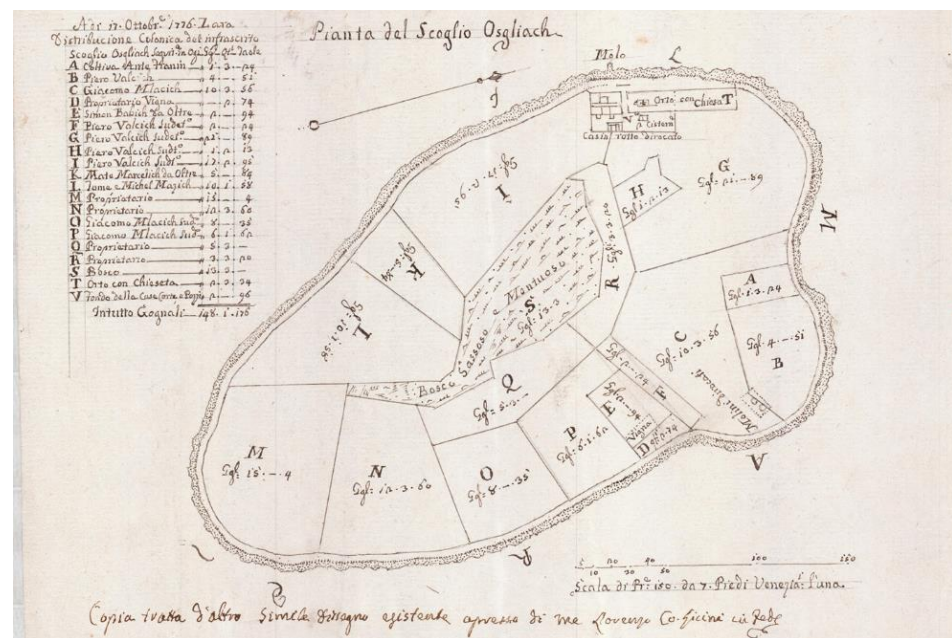 Adi 17. Ottobr.e 1776. Zara
Distribucione Colonica del infrascrito
Scoglio Osgliach
A Coltiva Ante Franin 1. 3. 24
B Piero Valcich 4. — 51
C Giacomo Mlacich 10. 3. 56
D Proprietario Vigna 2. 74
E Simon Babich da Oltre 2. 94
F Piero Valcich Sudet.o 2. 24
G Piero Valcich Sudet.o 21. — 89
H Piero Valcich Sud.o 1. 2. 13
I Piero Valcich Sud.o 17. 2. 95
K Mate Marcelich da Oltre 5. — 84
L Tome e Michel Mazich 10. 1. 58
M Proprietario 15. — 4
N Proprietario 12. 3. 60
O Giacomo Mlacich Sud.o 8. — 35
P Giacomo Mlacich Sud.o 6. 1. 62
Q Proprietario 5. 3. —
R Proprietario 3. 3. 20
S Bosco 13. 3. —
T Orto con Chieseta 2. 3. 74
V Fondo della Case Corte e 2. — 96
Intutto Gognali 148. 1. 176
Pianta del Scoglio Osgliach
Molo
L
Orto con Chiesa T
V
Cisterna
Casa rotto dirocato
G
Ggl: 21. — 89
H
Ggl: 1. 2. 13
I
Ggl: 17. 2. 95
K
Ggl: 5. — 84
L
Ggl: 10. 1. 58
Bosco Sassoso e Montuoso
S
Ggl: 13. 3
R
Ggl: 3. 3. 20
M
A
Ggl: 1. 3. 24
B
Ggl: 4. — 51
C
Ggl: 10. 3. 56
F
Ggl: 2. 24
E
Ggl: 2. 94
Vigna
D
Ggl: 2. 74
P
Ggl: 6. 1. 62
Q
Ggl: 5. 3. —
O
Ggl: 8. — 35
N
Ggl: 12. 3. 60
M
Ggl: 15. — 4
1 20 40 100 150
10 30 50
Scala di P. 150. da 7. Piedi Venez.i l'una.
Copia tratta d'altro Simile Disegno esistente apresso di me Lorenzo Co: Licini in Fede